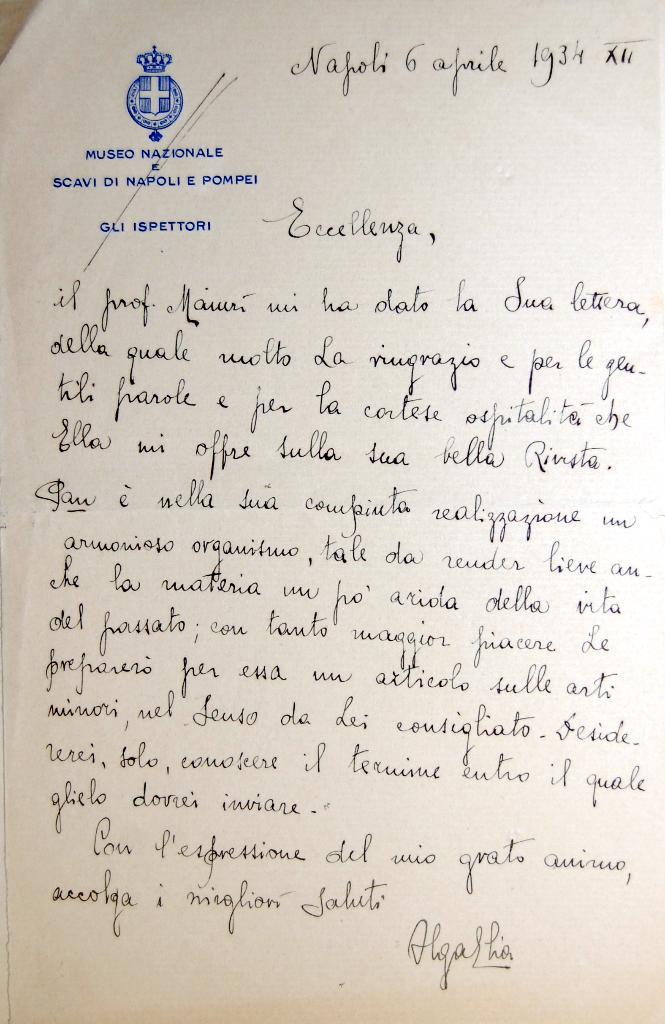 Napoli 6 aprile 1934 XII
MUSEO NAZIONALE
E
SCAVI DI NAPOLI E POMPEI
GLI ISPETTORI
Eccellenza,
il prof. Maiuri mi ha dato la Sua lettera,
della quale molto La ringrazio e per le gen-
tili parole e per la cortese ospitalità che
Ella mi offre sulla sua bella Rivista.
Pan è nella sua compiuta realizzazione un
armonioso organismo, tale da render lieve an-
che la materia un pò arida della vita
del passato; con tanto maggior piacere Le
preparerò per essa un articolo sulle arti
minori, nel senso da Lei consigliato. Deside-
rerei, solo, conoscere il termine entro il quale
glielo dovrei inviare.
Con l'espressione del mio grato animo,
accolga i migliori saluti
Olga Elia